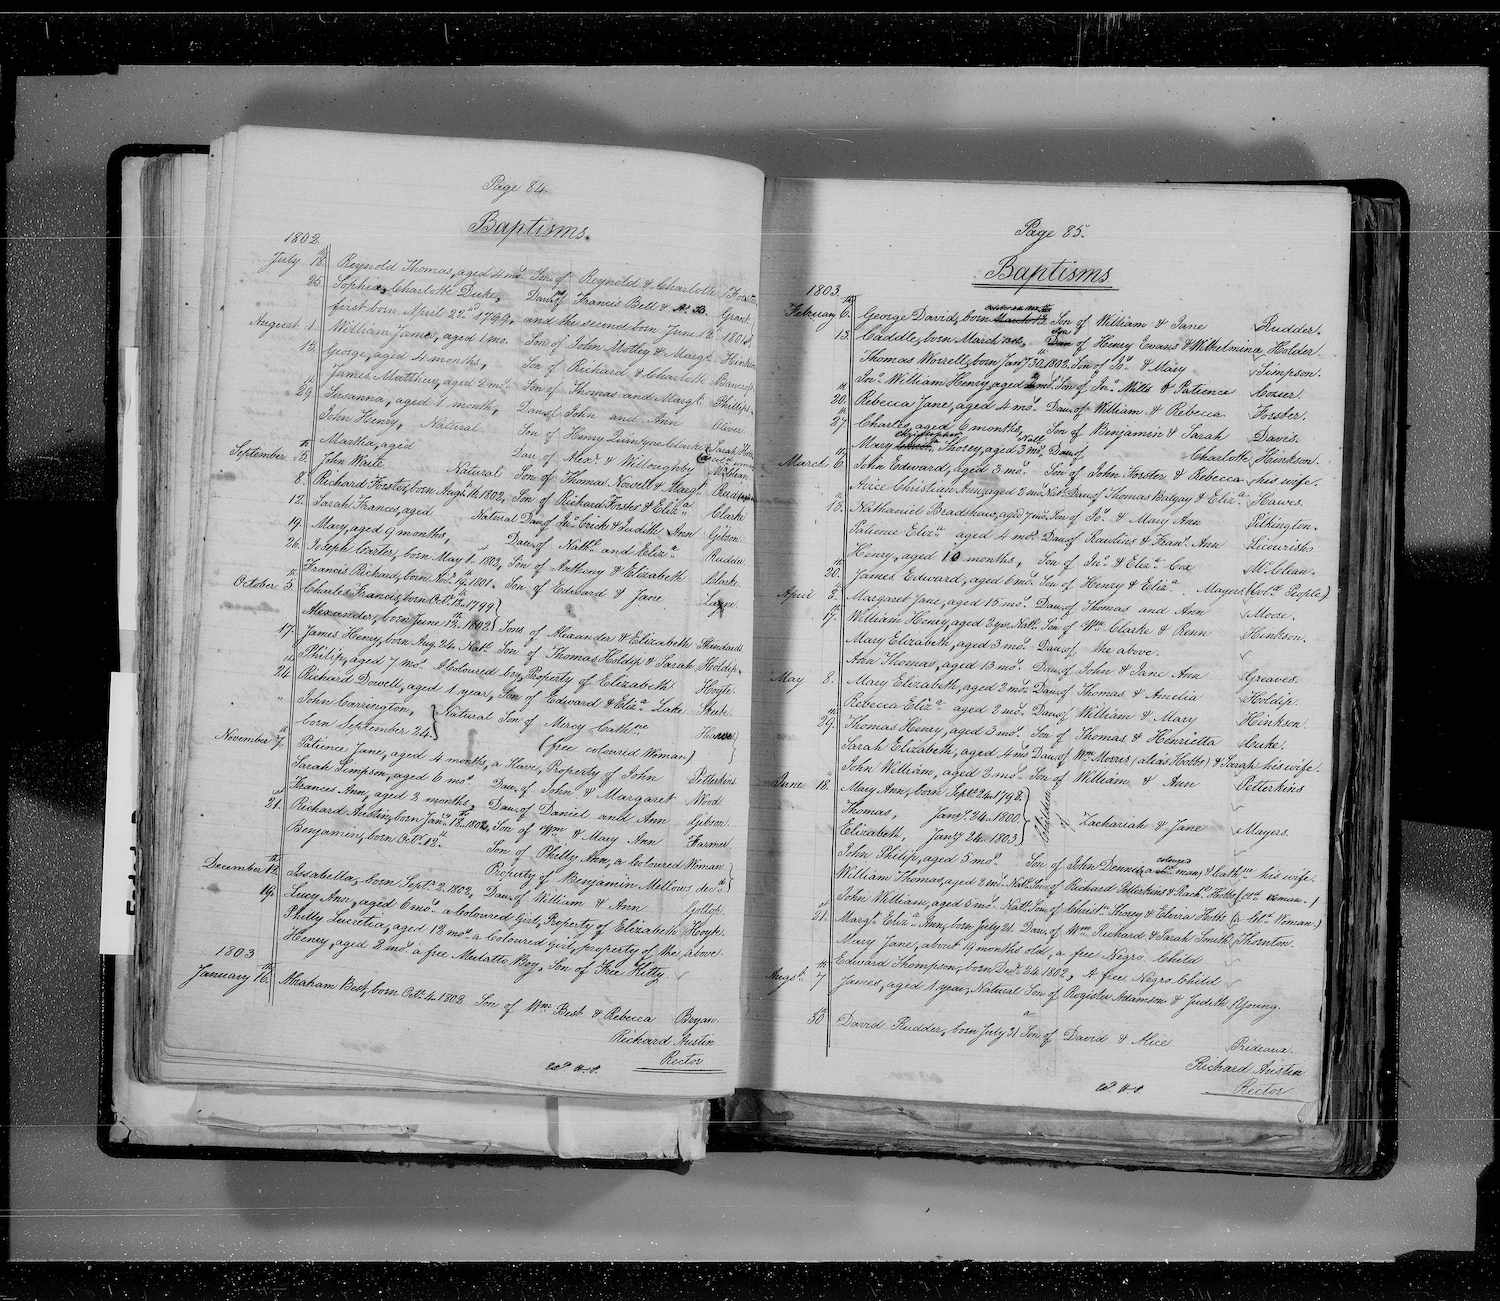 Page 84.
Baptisms.
1802
July 18. Reynold Thomas, aged 4 mos. Son of Reynold & Charlotte
25. Sophia Charlotte Duke, Daur. of Francis Bell & A. B. Grant
first born April 22nd 1799, and the second born June 1801
August 1. William James, aged 1 mo. Son of John Motley & Margt. Hinkson
15. George, aged 4 months, Son of Richard & Charlotte Bancroft
James Matthew, aged 2 mos. Son of Thomas and Margt. Phillips
29. Susanna, aged 1 month, Daur. of John and Ann Oliver
John Henry, Natural Son of Henry Quintyne Clarke & Sarah
Martha, aged Daur. of Alexr. & Willoughby McClean
September 5. John Waite Natural Son of Thomas Nowell & Margt.
8. Richard Forster, born Augst. 1802, Son of Richard Forster & Eliza. Clarke
12. Sarah Frances, aged Natural Daur. of Jno. Crick & Judith Ann Gibson
19. Mary, aged 9 months, Daur. of Nathl. and Eliza. Rudder
26. Joseph Carter, born May 1st 1802, Son of Anthony & Elizabeth Clarke
Francis Richard, born 1801. Son of Edward & Jane Layne
October 3. Charles Francis, born Octr. 18th 1799
Alexander, born June 12th 1802 Sons of Alexander & Elizabeth Standard
17. James Henry, born Aug. 24 Natl. Son of Thomas Holdip & Sarah Holdip.
Philip, aged 7 mos. A Coloured boy Property of Elizabeth Hoyte
24 Richard Dowell, aged 1 year, Son of Edward & Eliza. Lake
" John Carrington, Natural Son of Mercy Cathne.
born September 24 (free coloured Woman)
November 7. Patience Jane, aged 4 months, a Slave, Property of John Pitterkins
Sarah Simpson, aged 6 mos. Daur. of John & Margaret Wood
Frances Ann, aged 2 months, Daur. of Daniel and Ann Gibson
21. Richard Austin, born Jany. 18th 1802, Son of Wm. & Mary Ann Farmer
Benjamin, born Octr. 12th Son of Philly Ann, a Coloured Woman
Property of Benjamin Mellows decd.
December 12. Issabella, born Septr. 2. 1802, Daur. of William & Ann Gollop
19. Lucy Ann, aged 6 mos. a Coloured girl, Property of Elizabeth
Philly Lucretia, aged 12 mos. a Coloured girl, property of the above
Henry, aged 2 mos. a free Mulatto Boy, Son of Free Hetty
1803
January 16. Abraham Best, born Octr. 4. 1802 Son of Wm. Best & Rebecca Bryan
Richard Austin
Rector
Page 85.
Baptisms
1803.
February 6. George David, born Son of William & Jane Rudder.
13. Caddle, born March Son of Henry Evans & Wilhelmina Holder
Thomas Worrell, born Jany. 30 1802, Son of Jo. & Mary Simpson.
Jno. William Henry, aged mos. Son of Jno. Mitts & Patience
20. Rebecca Jane, aged 4 mos. Daur. of William & Rebecca Forster.
27 Charles, aged 6 months, Son of Benjamin & Sarah Davis
Mary Christian Thorey, aged 3 mos. Natl. Daur. of Charlotte Hinkson.
March 6. John Edward, aged 3 mos. Son of John Forster & Rebecca his wife.
Alice Christian Ann, aged 2 mos. Natl. Daur. of Thomas Balgay & Eliza. Hawes.
13. Nathaniel Bradshaw, aged 7 mos. Son of Jo. & Mary Ann Pilkington.
Patience Eliza. aged 4 mos. Daur. of Rawlins & Frans. Ann Licourish
Henry, aged 10 months, Son of Jno. & Eliza. Cox McClean.
20. James Edward, aged 6 mos. Son of Henry & Eliza. Mayers (Col. People)
April 8. Margaret Jane, aged 15 mos. Daur. of Thomas and Ann Moore.
17. William Henry, aged 3 yrs. Natl. Son of Wm. Clarke & Renn Hinkson.
Mary Elizabeth, aged 3 mos. Daur. of the above.
Ann Thomas, aged 13 mos. Daur. of John & Jane Ann Greaves
May 8. Mary Elizabeth, aged 2 mos. Daur. of Thomas & Amelia Holdip.
Rebecca Eliza. aged 2 mos. Daur. of William & Mary Hinkson.
29. Thomas Henry, aged 3 mos. Son of Thomas & Henrietta Cuke.
Sarah Elizabeth, aged 4 mos. Daur. of Wm. Morris (alias Hobbs) & Sarah his wife.
John William, aged 2 mos. Son of William & Ann Pitterkins
June 18. Mary Ann, born Septr. 24 1798.
Thomas, Jany. 24 1800. Children of Zachariah & Jane Mayers
Elizabeth, Jany. 24 1803
John Philip, aged 5 mos. Son of John Dennis, a colored man, & Cathne. his wife.
William Thomas, aged 2 mos. Natl. Son of Richard Pitterkins & Rach. Holts (Col. woman.)
John William, aged 6 mos. Natl. Son of Christr. Thorey & Elvira Hobbs (a Cold. Woman)
21. Margt. Eliza. Ann, born July 21. Daur. of Wm. Richard & Sarah Smith Thornton.
Mary Jane, about 19 months old, a free Negro Child
Edward Thompson, born Decr. 24 1802. A free Negro Child
Augst. 7 James, aged 1 year, Natural Son of Register Adamson & Judith Young.
30 David Rudder, born July 31st Son of David & Alice Prideaux.
Richard Austin
Rector